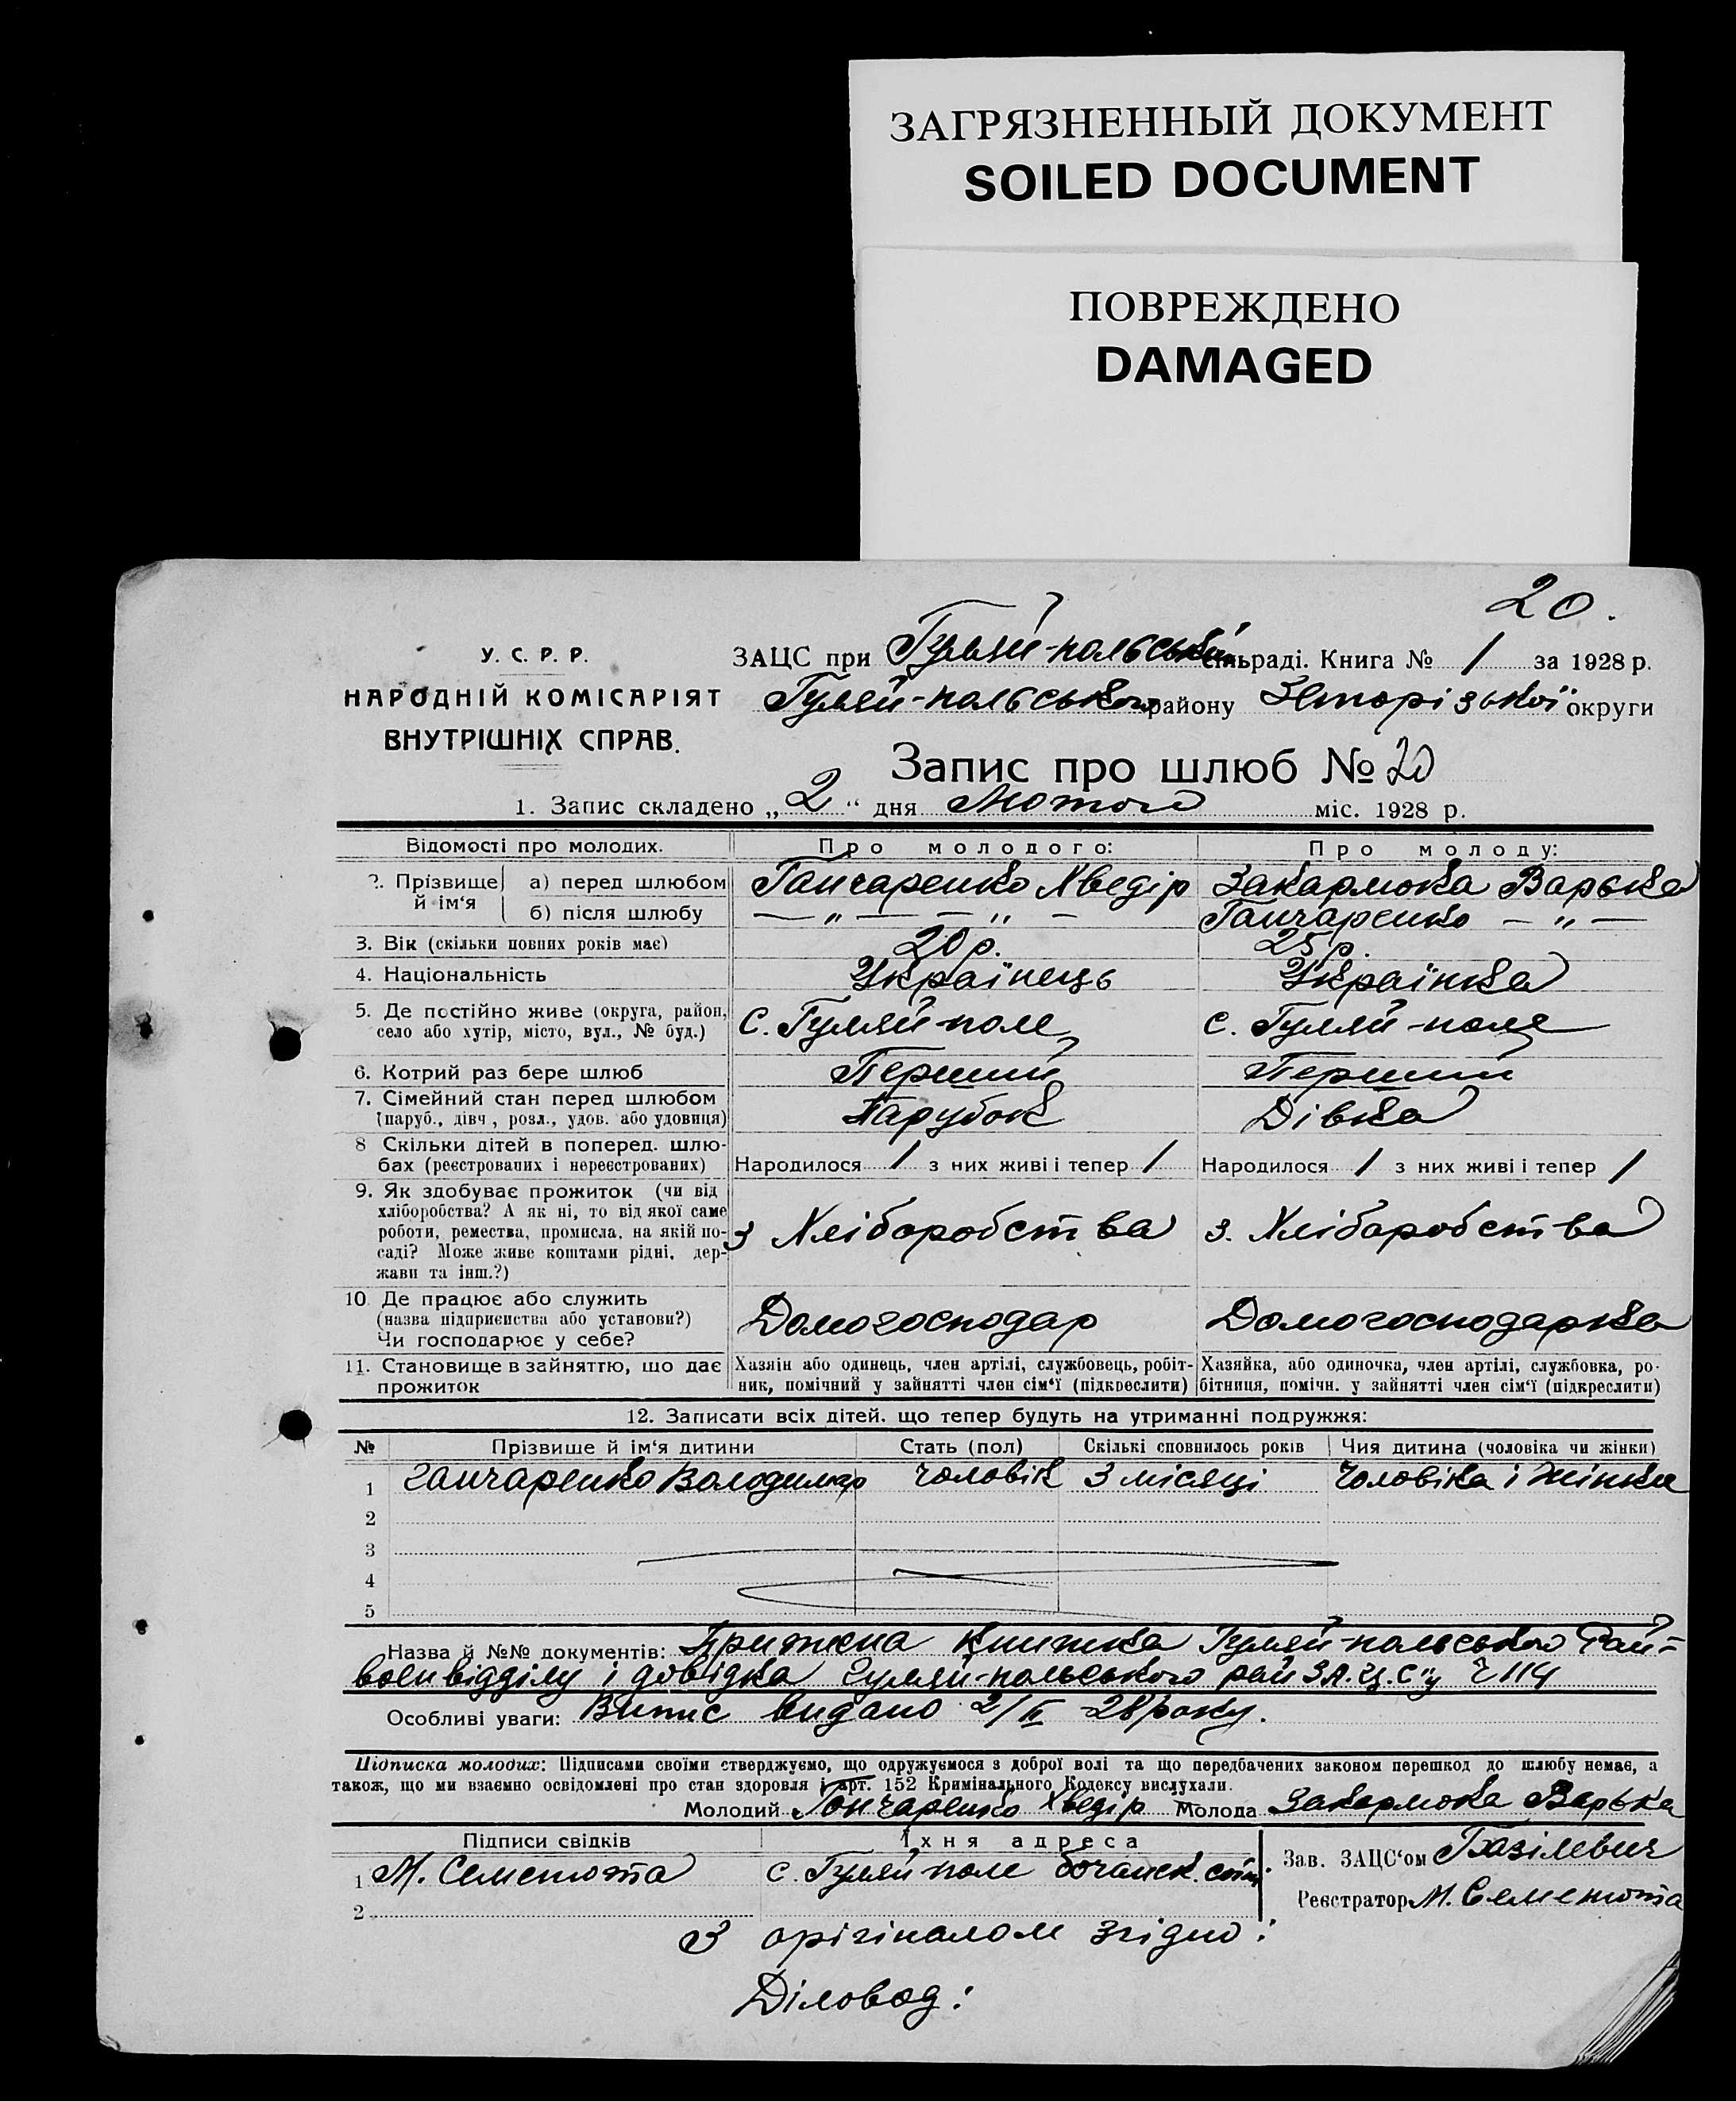 ЗАГРЯЗНЕННЫЙ ДОКУМЕНТ
SOILED DOCUMENT
ПОВРЕЖДЕНО
DAMAGED
20.
У. С. Р. Р.
НАРОДНІЙ КОМІСАРІЯТ
ВНУТРІШНІХ СПРАВ.
ЗАЦС при Гуляй-польській сільраді. Книга № 1 за 1928 р.
Гуляй-польського району округи
Запис про шлюб № 20
1. Запис складено „2“ дня Лютого міс. 1928 р.
Відомості про молодих. Про молодого: Про молоду:
2. Прізвище й ім'я а) перед шлюбом Ганчаренко Хведір Закармока Варька
б) після шлюбу — „ — — „ — Ганчаренко — „ —
3. Вік (скільки повних років має) 20 р. 25 р.
4. Національність Українець Українка
5. Де постійно живе (округа, район, село або хутір, місто, вул., № буд.) С. Гуляй-поле с. Гуляй-поле
6. Котрий раз бере шлюб Перший Перший
7. Сімейний стан перед шлюбом (паруб., дівч., розл., удов. або удовиця) Парубок Дівка
8 Скільки дітей в поперед. шлюбах (реєстрованих і нереєстрованих) Народилося / з них живі і тепер / Народилося / з них живі і тепер /
9. Як здобуває прожиток (чи від
хліборобства? А як ні, то від якої саме
роботи, ремества, промисла, на якій по-
саді? Може живе коштами рідні, дер-
жави та інш.?)
З Хліборобства З. Хліборобства
10. Де працює або служить
(назва підприємства або установи?)
Чи господарює у себе?
Домогосподар Домогосподарка
11. Становище в зайняттю, що дає
прожиток
Хазяїн або одинець, член артілі, службовець, робіт-
ник, помічний у зайнятті член сім'ї (підкреслити)
Хазяйка, або одиночка, член артілі, службовка, ро-
бітниця, помічн. у зайнятті член сім'ї (підкреслити)
12. Записати всіх дітей. що тепер будуть на утриманні подружжя:
№ Прізвище й ім'я дитини Стать (пол) Скількі сповнилось років Чия дитина (чоловіка чи жінки)
1 Ганчаренко Володимир чоловік 3 місяці Чоловіка і Жінки
2
3
4
5
Назва й №№ документів: книжка Гуляй-польського Рай-
военвідділу і довідка Гуляй-польського рай З.А.Ц.С"у Ч 114
Особливі уваги: Випис видано 2/II -28 року.
Підписка молодих: Підписами своїми стверджуємо, що одружуємося з доброї волі та що передбачених законом перешкод до шлюбу немає, а
також, що ми взаємно освідомлені про стан здоровля і арт. 152 Кримінального Кодексу вислухали.
Молодий Гончаренко Хведір Молода Закармока Варька
Підписи свідків Їхня адреса
1 М. Семенюта с. Гуляй поле
2
Зав. ЗАЦС'ом Базілевич
Реєстратор М. Семенюта
З орігіналом згідно:
Діловод: